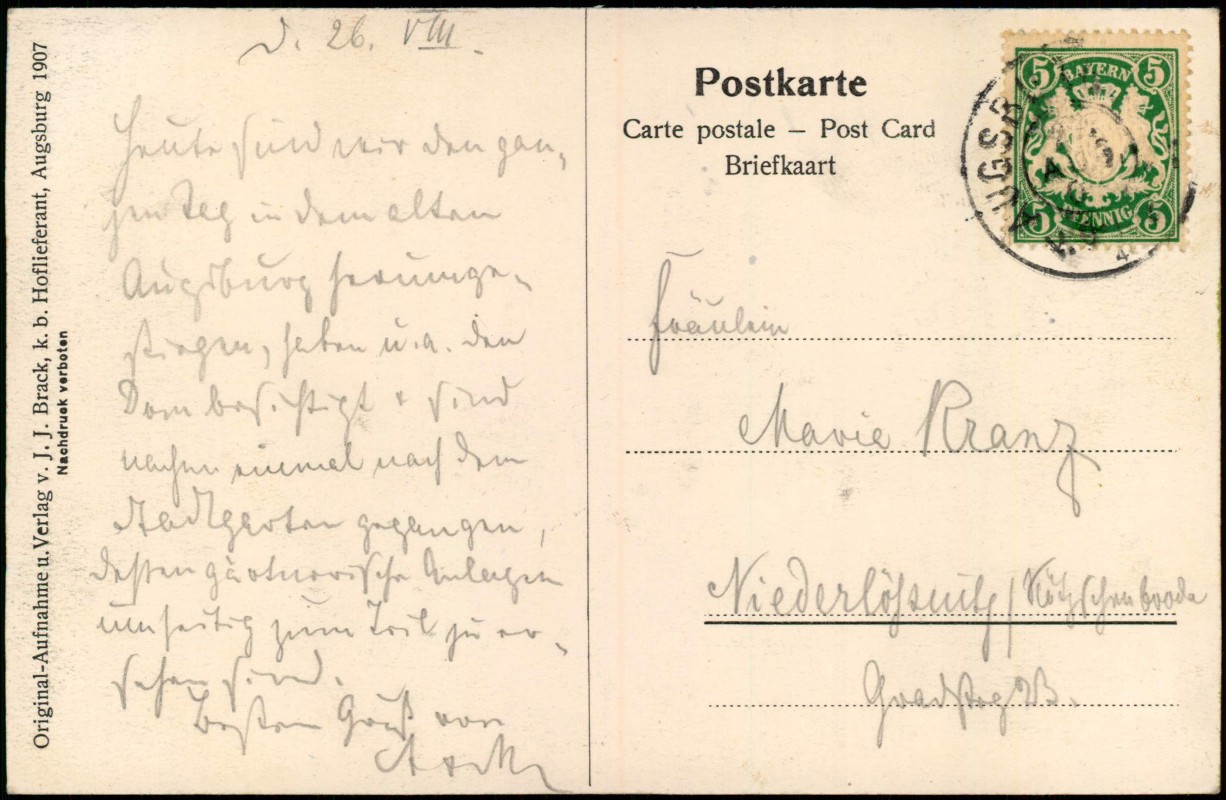 Original-Aufnahme u. Verlag v. J. J. Brack, k. b. Hoflieferant, Augsburg 1907
Nachdruck verboten
d. 26. VIII.
Heute sind wir den gan-
zen Tag in dem alten
Augsburg herumge-
stiegen, haben u. a. den
Dom besichtigt & sind
einmal nach dem
Stadtgarten gegangen,
dessen gärtnerische Anlagen
umseitig zum Teil zu er-
sehen sind.
Besten Gruß von
Postkarte
Carte postale – Post Card
Briefkaart
5 BAYERN 5
5 PFENNIG 5
AUGSB
Fräulein
Marie Kranz
Niederlößnitz / Kötzschenbroda